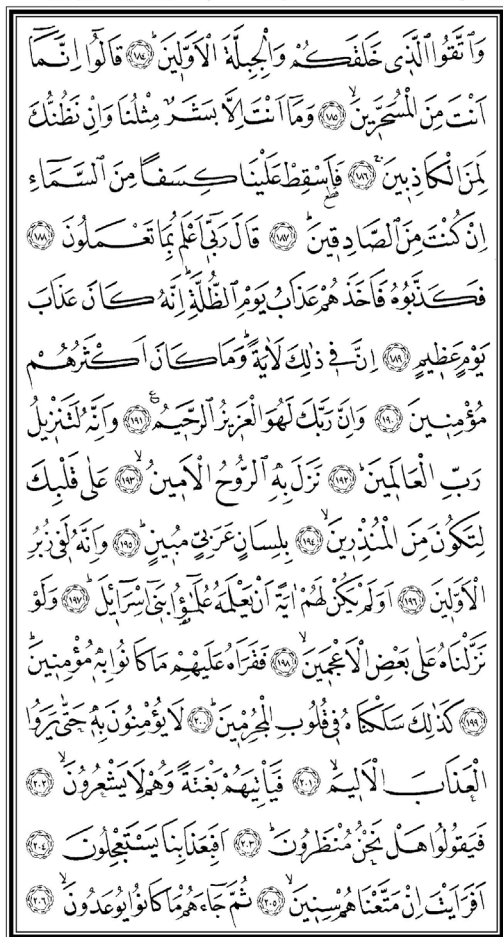 وَاتَّقُوا الَّذٖي خَلَقَكُمْ وَالْجِبِلَّةَ الْاَوَّلٖينَؕ ﴿١٨٤﴾ قَالُٓوا اِنَّمَٓا
اَنْتَ مِنَ الْمُسَحَّرٖينَۙ ﴿١٨٥﴾ وَمَٓا اَنْتَ اِلَّا بَشَرٌ مِثْلُنَا وَاِنْ نَظُنُّكَ
لَمِنَ الْكَاذِبٖينَۚ ﴿١٨٦﴾ فَاَسْقِطْ عَلَيْنَا كِسَفًا مِنَ السَّمَٓاءِ
اِنْ كُنْتَ مِنَ الصَّادِقٖينَؕ ﴿١٨٧﴾ قَالَ رَبّٖٓي اَعْلَمُ بِمَا تَعْمَلُونَ ﴿١٨٨﴾
فَكَذَّبُوهُ فَاَخَذَهُمْ عَذَابُ يَوْمِ الظُّلَّةِؕ اِنَّهُ كَانَ عَذَابَ
يَوْمٍ عَظٖيمٍ ﴿١٨٩﴾ اِنَّ فٖي ذٰلِكَ لَاٰيَةًؕ وَمَا كَانَ اَكْثَرُهُمْ
مُؤْمِنٖينَ ﴿١٩٠﴾ وَاِنَّ رَبَّكَ لَهُوَ الْعَزٖيزُ الرَّحٖيمُࣖ ﴿١٩١﴾ وَاِنَّهُ لَتَنْزٖيلُ
رَبِّ الْعَالَمٖينَؕ ﴿١٩٢﴾ نَزَلَ بِهِ الرُّوحُ الْاَمٖينُۙ ﴿١٩٣﴾ عَلٰى قَلْبِكَ
لِتَكُونَ مِنَ الْمُنْذِرٖينَۙ ﴿١٩٤﴾ بِلِسَانٍ عَرَبِيٍّ مُبٖينٍؕ ﴿١٩٥﴾ وَاِنَّهُ لَفٖي زُبُرِ
الْاَوَّلٖينَ ﴿١٩٦﴾ اَوَلَمْ يَكُنْ لَهُمْ اٰيَةً اَنْ يَعْلَمَهُ عُلَمٰٓؤُا بَنٖٓي اِسْرَٓائٖلَؕ ﴿١٩٧﴾ وَلَوْ
نَزَّلْنَاهُ عَلٰى بَعْضِ الْاَعْجَمٖينَۙ ﴿١٩٨﴾ فَقَرَاَهُ عَلَيْهِمْ مَا كَانُوا بِهٖ مُؤْمِنٖينَؕ
﴿١٩٩﴾ كَذٰلِكَ سَلَكْنَاهُ فٖي قُلُوبِ الْمُجْرِمٖينَؕ ﴿٢٠٠﴾ لَا يُؤْمِنُونَ بِهٖ حَتّٰى يَرَوُا
الْعَذَابَ الْاَلٖيمَۙ ﴿٢٠١﴾ فَيَأْتِيَهُمْ بَغْتَةً وَهُمْ لَا يَشْعُرُونَۙ ﴿٢٠٢﴾
فَيَقُولُوا هَلْ نَحْنُ مُنْظَرُونَؕ ﴿٢٠٣﴾ اَفَبِعَذَابِنَا يَسْتَعْجِلُونَ ﴿٢٠٤﴾
اَفَرَاَيْتَ اِنْ مَتَّعْنَاهُمْ سِنٖينَۙ ﴿٢٠٥﴾ ثُمَّ جَٓاءَهُمْ مَا كَانُوا يُوعَدُونَۙ ﴿٢٠٦﴾